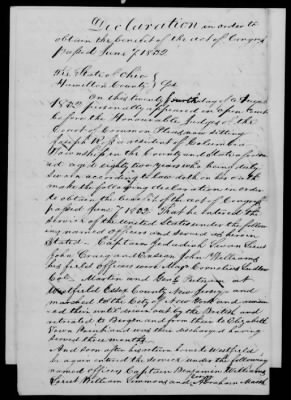 Declaration in order to
obtain the benefit of the act of Congress
passed June 7 1832
The State of Ohio
Hamilton County } ss
On this twenty fourth day of August
1832 personally appeared in open Court
before the Honourable Judges of the
Court of Common Pleas now sitting
Joseph a resident of Columbia
Township in the County and State afore
said aged eighty two years who being duly
Sworn according to law doth on his oath
make the following declaration in order
to obtain the benefit of the act of Congress
passed June 7 1832 That he entered the
service of the United States under the follow
ing named officers and served as herein
Stated – Captain Jedadiah Swan Lieut
John Craig and Ensign John Williams
his field officers were Major Cornelius Ludlow
Col Martin and at
Westfield Essex County New Jersey and
marched to the City of New York and
ed there until driven out by the British and
retreated to Bergen and from there to Elizabeth
Town and was there discharged having
served three months
And soon after his return to Westfield
he again entered the service under the following
named officers Captain Benjamin Williams
Lieut William Simmons and Abraham Marsh